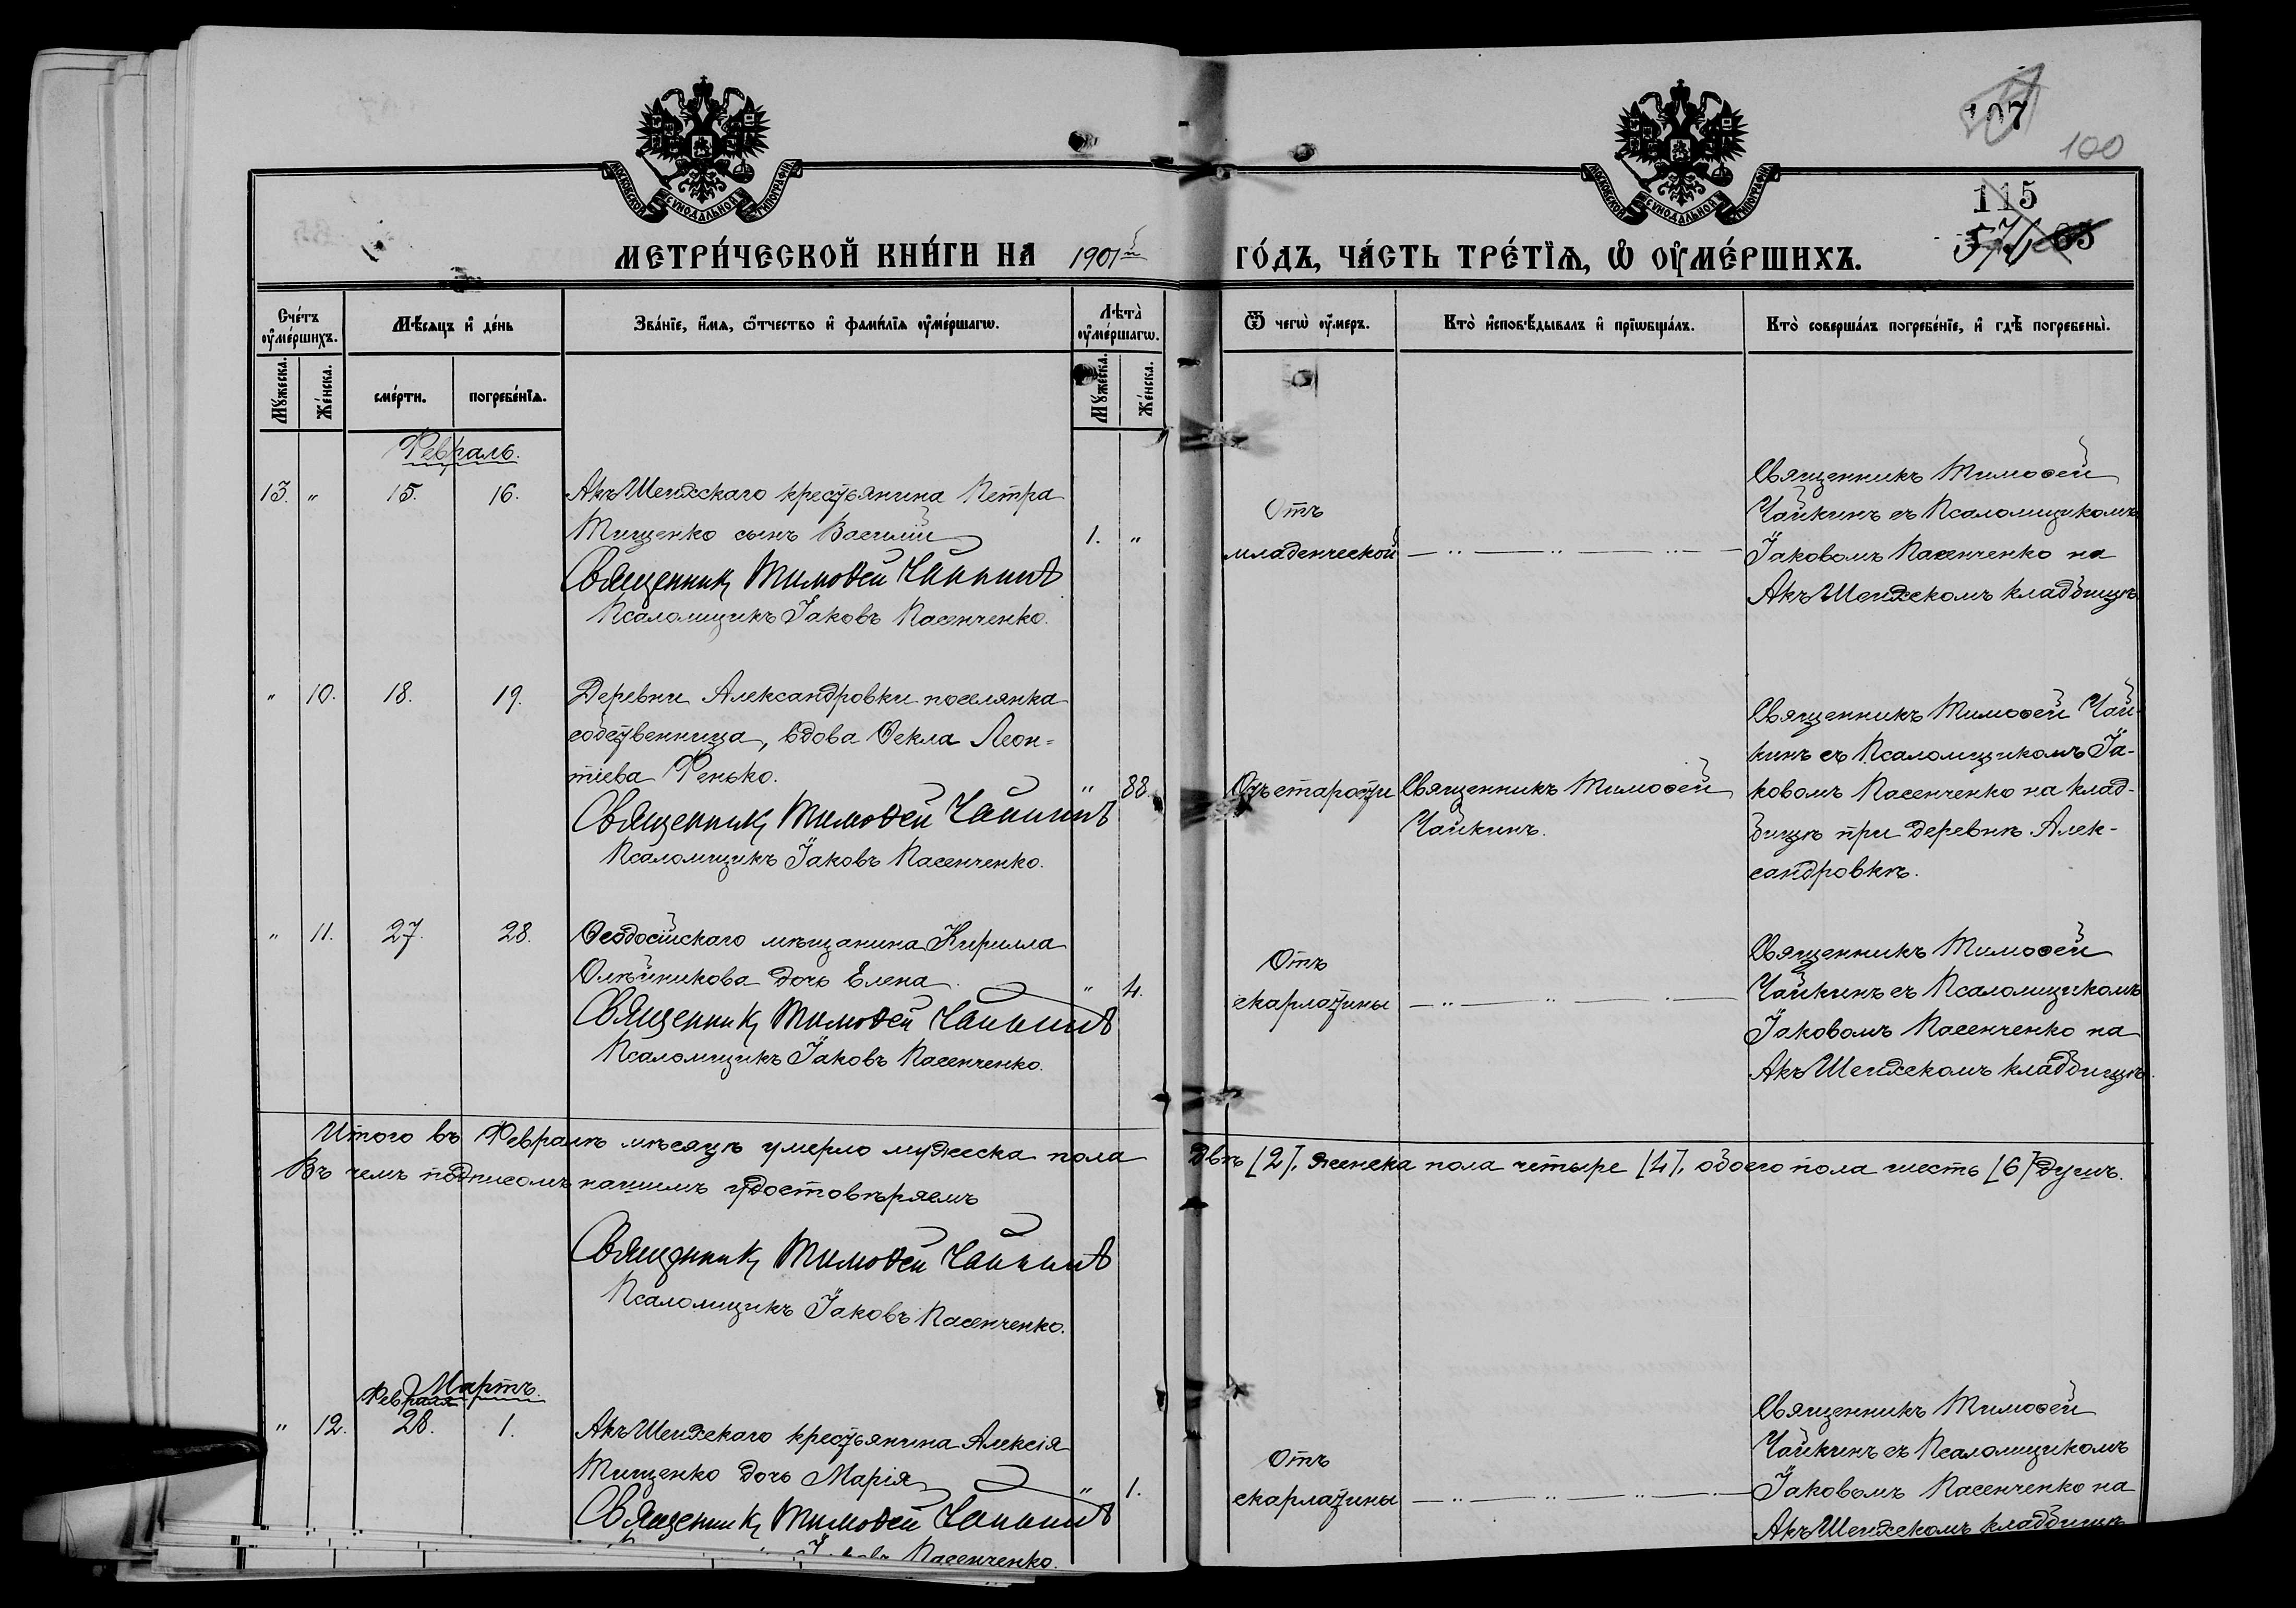 107
100
115
57 65
МОСКОВСКОЙ СУНОДАЛЬНОЙ ТИПОГРАФІИ
МОСКОВСКОЙ СУНОДАЛЬНОЙ ТИПОГРАФІИ
МЕТРИ́ЧЕСКОЙ КНИ́ГИ НА 1901й ГО́ДЪ, ЧА́СТЬ ТРЕ́ТЇѦ, Ѡ҆ ОУ҆МЕ́РШИХЪ.
Сче́тъ оу҆ме́ршихъ.
Мѣ́сѧцъ и҆ де́нь
Зва́нїе, и҆́мѧ, ѻ҆́тчество и҆ фами́лїѧ оу҆ме́ршагѡ.
Лѣ́та оу҆ме́ршагѡ.
Ѿ чегѡ̀ оу҆́меръ.
Кто̀ и҆сповѣ́дывалъ и҆ прїѡбща́лъ.
Кто̀ соверша́лъ погребе́нїе, и҆ гдѣ̀ погребены̀.
Мꙋ́жеска.
Же́нска.
сме́рти.
погребе́нїѧ.
Мꙋ́жеска.
Же́нска.
Февраль.
13. " 15. 16.
АкъШеихскаго крестьянина Петра
Тищенко сынъ Василій
1. "
Священникъ Тимоѳей Чайкинъ
Псаломщикъ Іаковъ Пасенченко.
Отъ
младенческой
Священникъ Тимоѳей
Чайкинъ съ Псаломщикомъ
Іаковомъ Пасенченко на
АкъШеихскомъ кладбищѣ
" 10. 18. 19.
Деревни Александровки поселянка
собственница, вдова Ѳекла Леон=
тіева Ренько.
" 88.
Священникъ Тимоѳей Чайкинъ
Псаломщикъ Іаковъ Пасенченко.
Отъ старости
Священникъ Тимоѳей
Чайкинъ.
Священникъ Тимоѳей Чай-
кинъ съ Псаломщикомъ Іа-
ковомъ Пасенченко на клад-
бищѣ при деревнѣ Алек-
сандровкѣ.
" 11. 27. 28.
Ѳеодосійскаго мѣщанина Кирилла
Олѣйникова дочь Елена
" 4.
Священникъ Тимоѳей Чайкинъ
Псаломщикъ Іаковъ Пасенченко.
Отъ
скарлатины
Священникъ Тимоѳей
Чайкинъ съ Псаломщикомъ
Іаковомъ Пасенченко на
АкъШеихскомъ кладбищѣ.
Итого въ Февралѣ мѣсяцѣ умерло мужеска пола двѣ [2], женска пола четыре [4], обоего пола шесть [6] душъ.
Въ чемъ подписомъ нашимъ удостовѣряемъ
Священникъ Тимоѳей Чайкинъ
Псаломщикъ Іаковъ Пасенченко.
Мартъ.
Февраля
" 12. 28. 1.
АкъШеихскаго крестьянина Алексія
Тищенко дочь Марія
" 1.
Священникъ Тимоѳей Чайкинъ
Іаковъ Пасенченко.
Отъ
скарлатины
Священникъ Тимоѳей
Чайкинъ съ Псаломщикомъ
Іаковомъ Пасенченко на
АкъШеихскомъ кладбищѣ